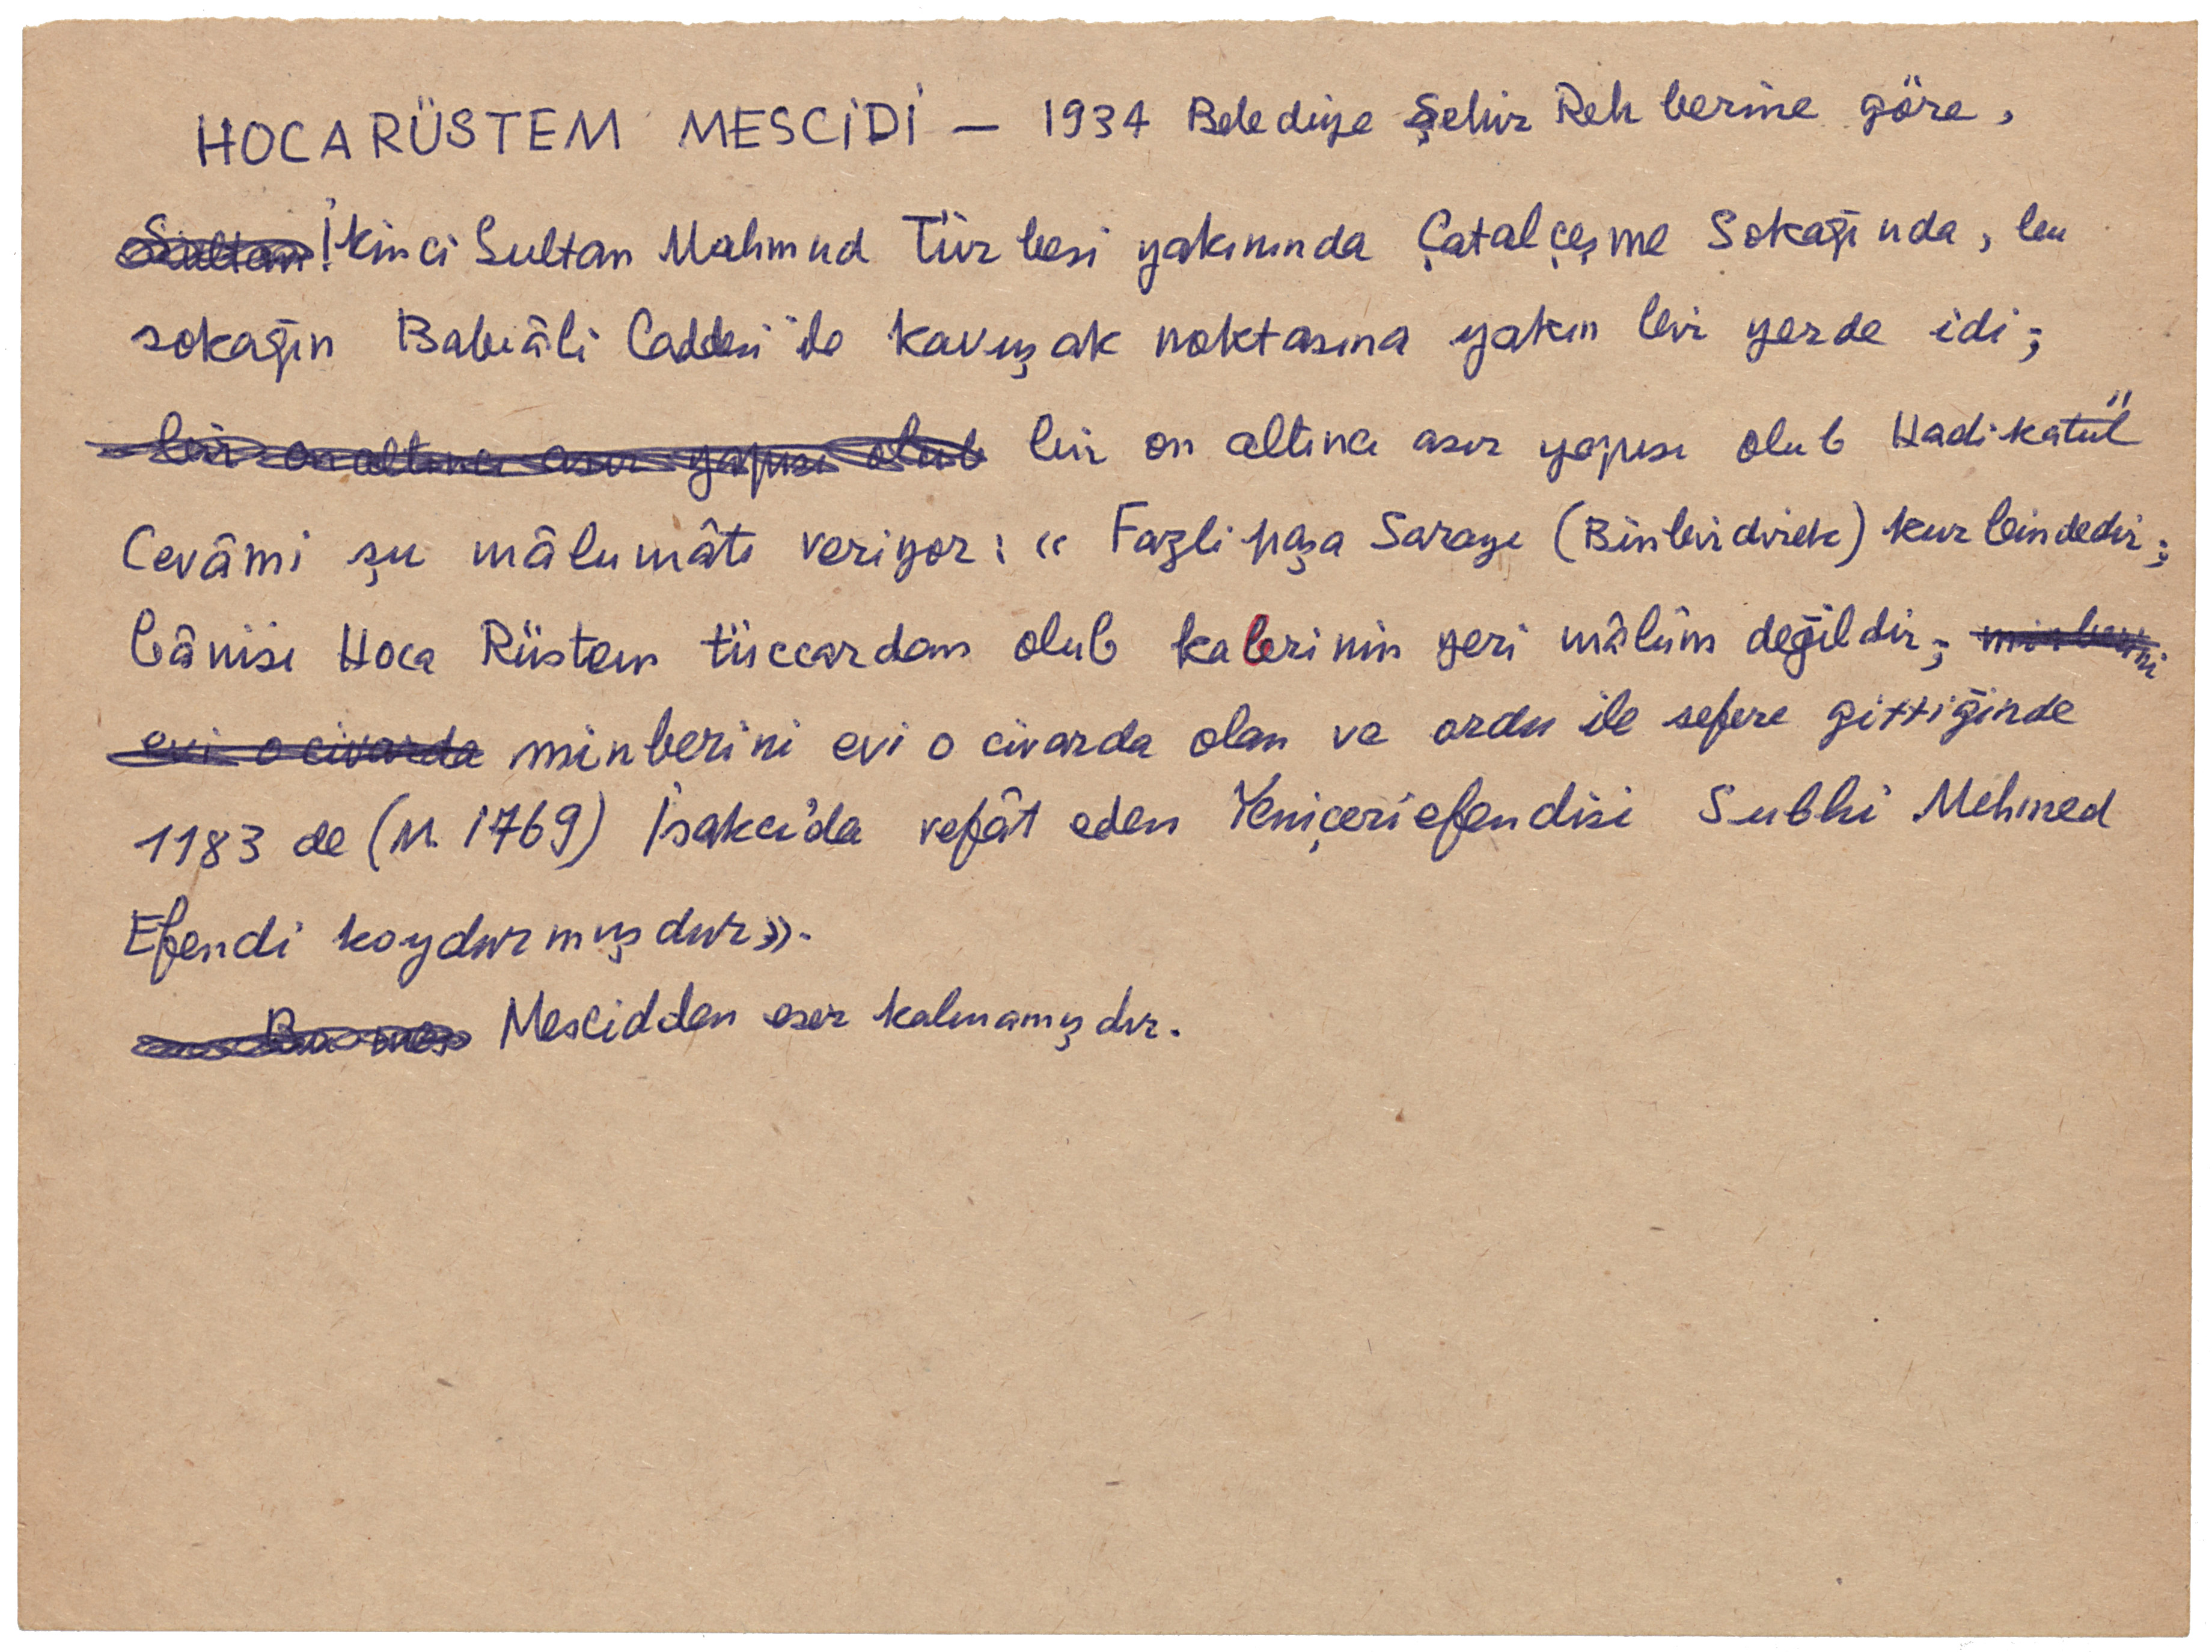 HOCARÜSTEM MESCİDİ — 1934 Belediye Şehir Rehberine göre,
Sultan İkinci Sultan Mahmud Türbesi yakınında Çatalçeşme Sokağında, bu
sokağın Babıâli Caddesi ile kavuşak noktasına yakın bir yerde idi;
bir on altıncı asır yapısı olub bir on altıncı asır yapısı olub Hadikatül
Cevâmi şu mâlumâtı veriyor: « Fazlipaşa Sarayı (Binbirdirek) kurbindedir;
bânisi Hoca Rüstem tüccardan olub kabrinin yeri mâlûm değildir; minberini
evi o civarda minberini evi o civarda olan ve ordu ile sefere gittiğinde
1183 de (M. 1769) İsakcı'da vefât eden Yeniçeriefendisi Subhi Mehmed
Efendi koydurmuşdur».
Bu mes Mescidden eser kalmamışdır.